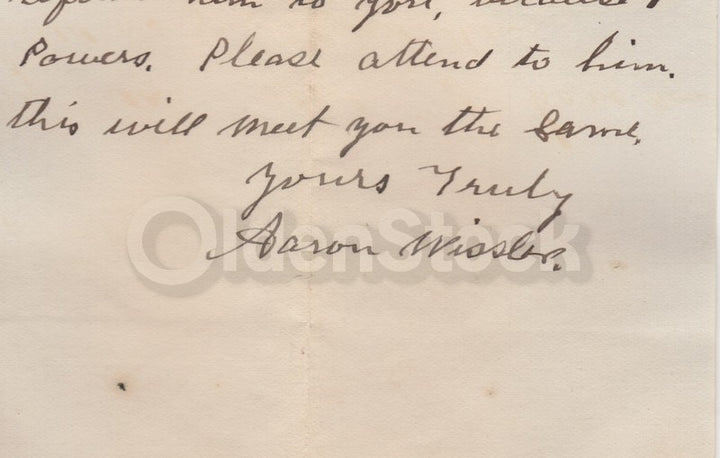 him to you,
Powers. Please attend to him.
this will meet you the same.
Yours Truly
OldenStock
Aaron Wissler.